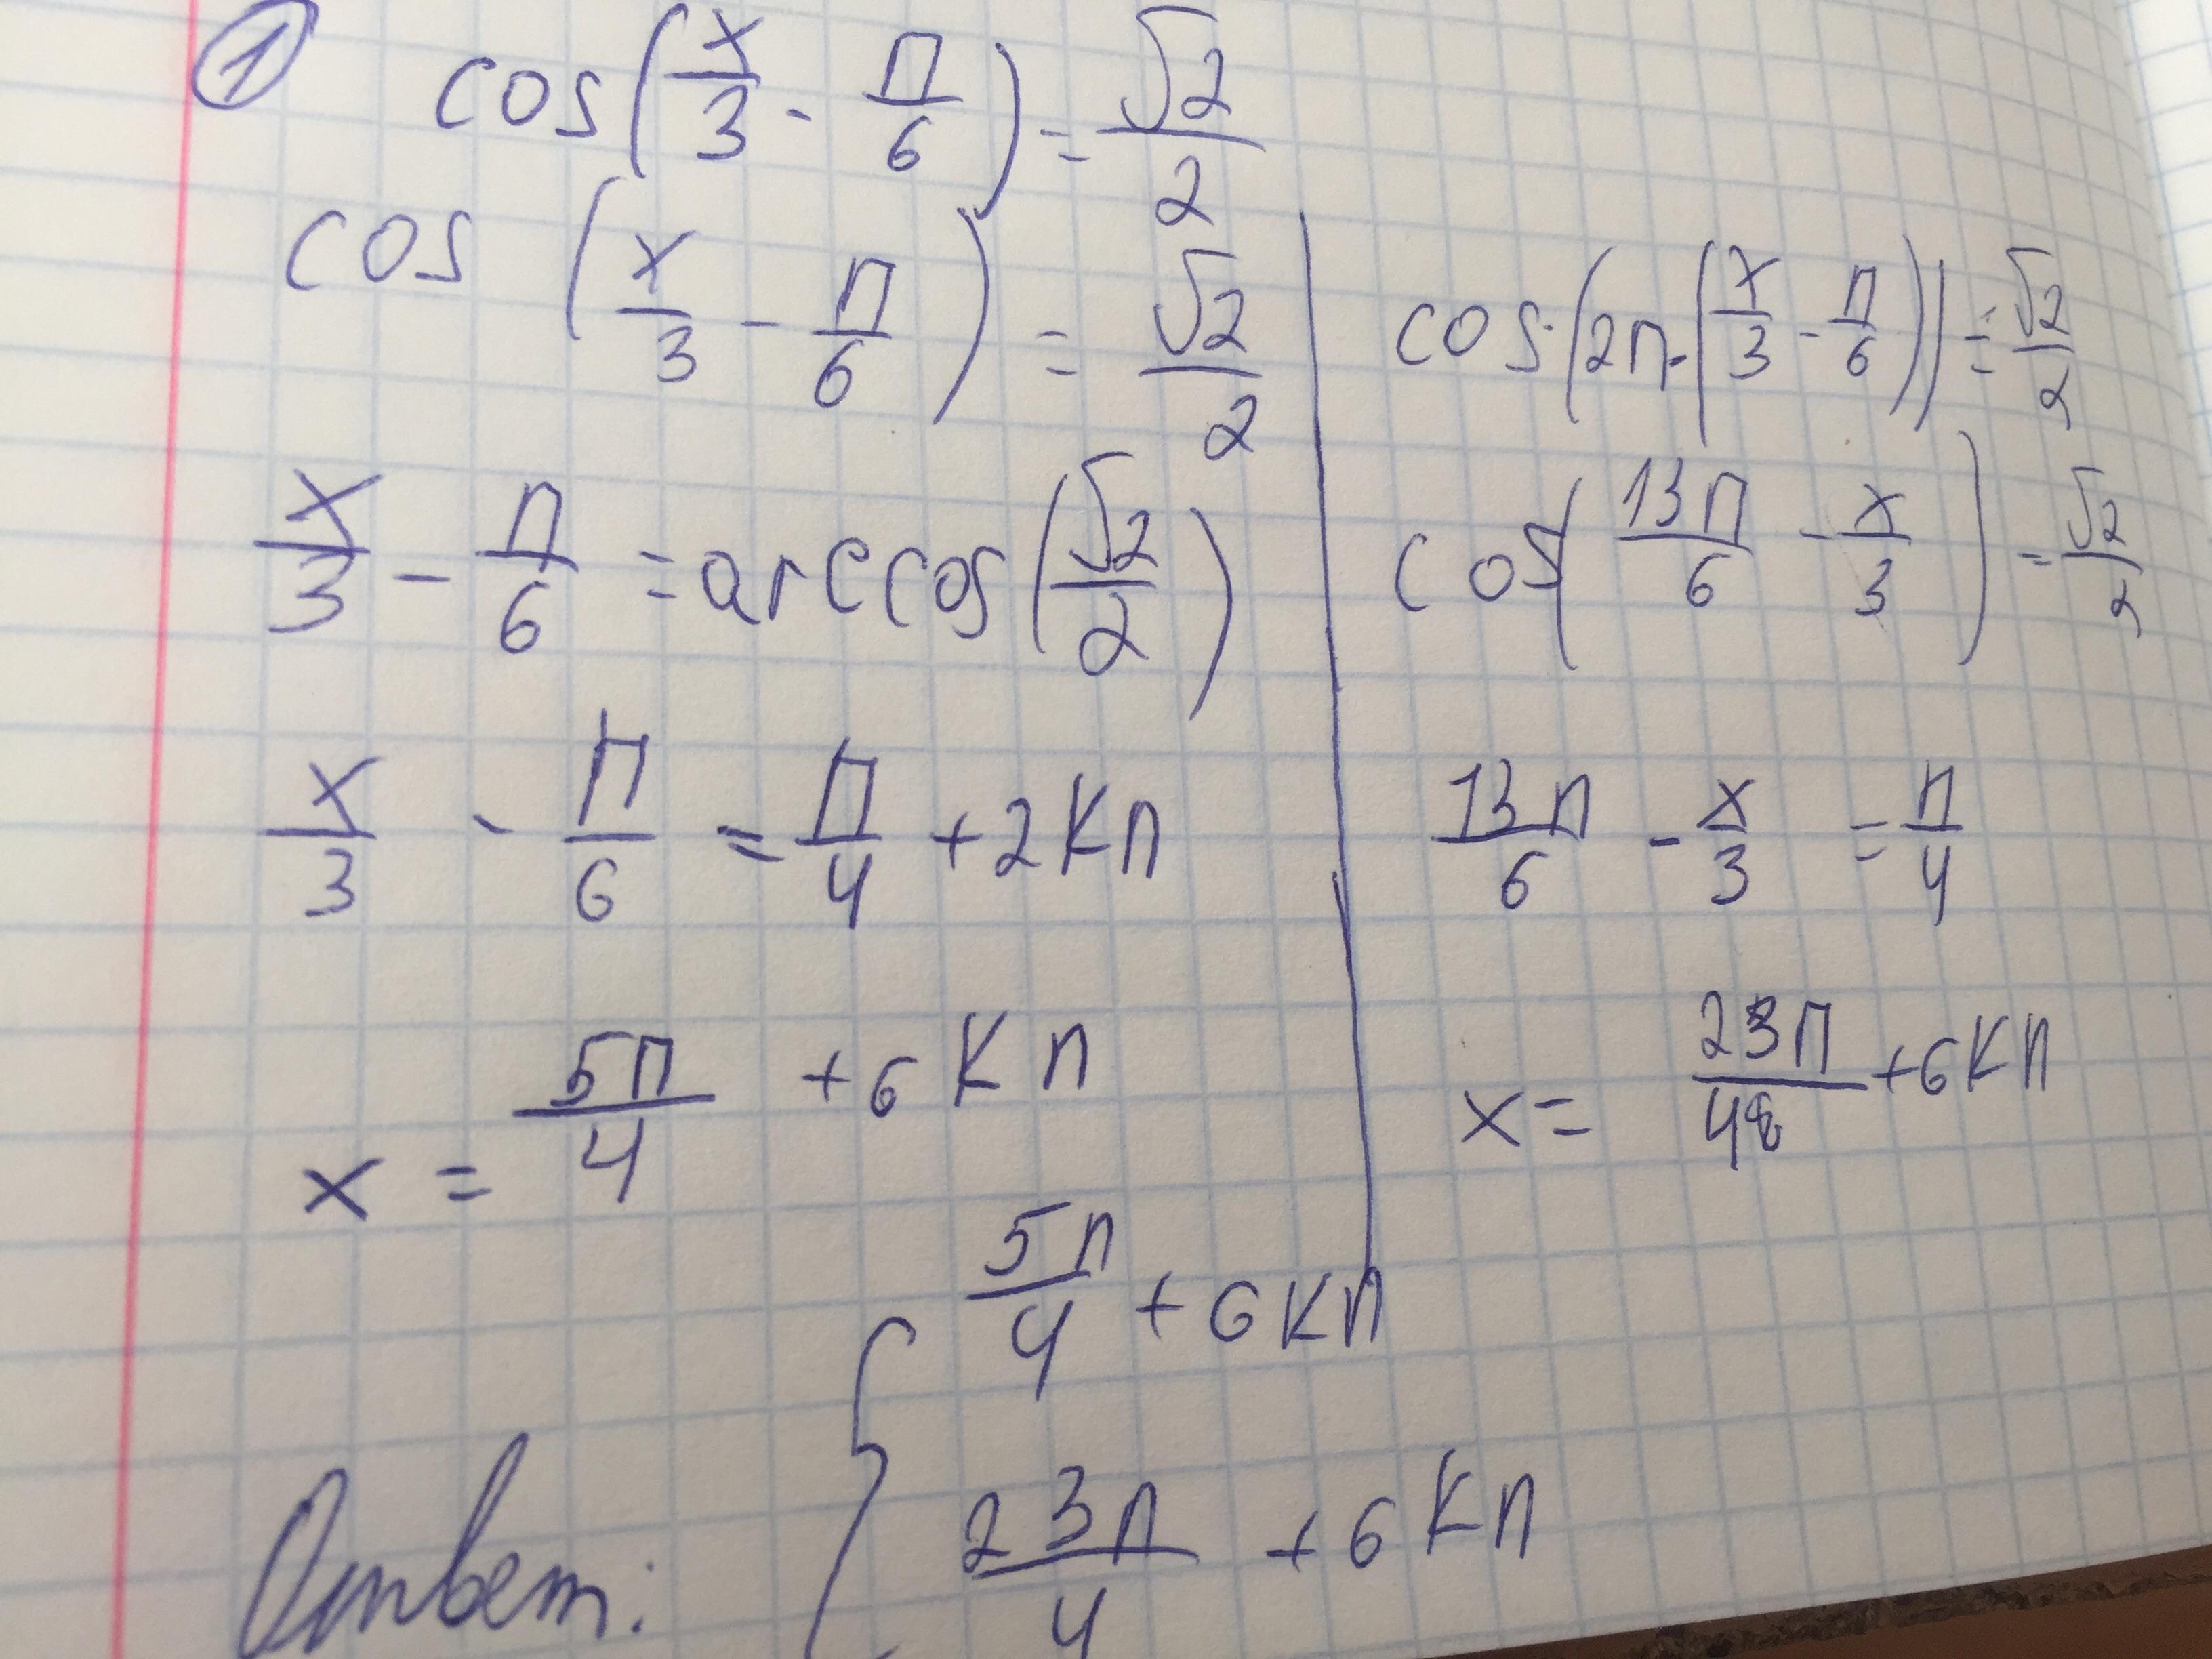 ① cos(x/3 - π/6) = √2/2
cos (x/3 - π/6) = √2/2
x/3 - π/6 = arccos(√2/2)
x/3 - π/6 = π/4 + 2kπ
x = 5π/4 + 6kπ
cos(2π - (x/3 - π/6)) = √2/2
cos(13π/6 - x/3) = √2/2
13π/6 - x/3 = π/4
x = 23π/4 + 6kπ
Ответ: { 5π/4 + 6kπ
23π/4 + 6kπ